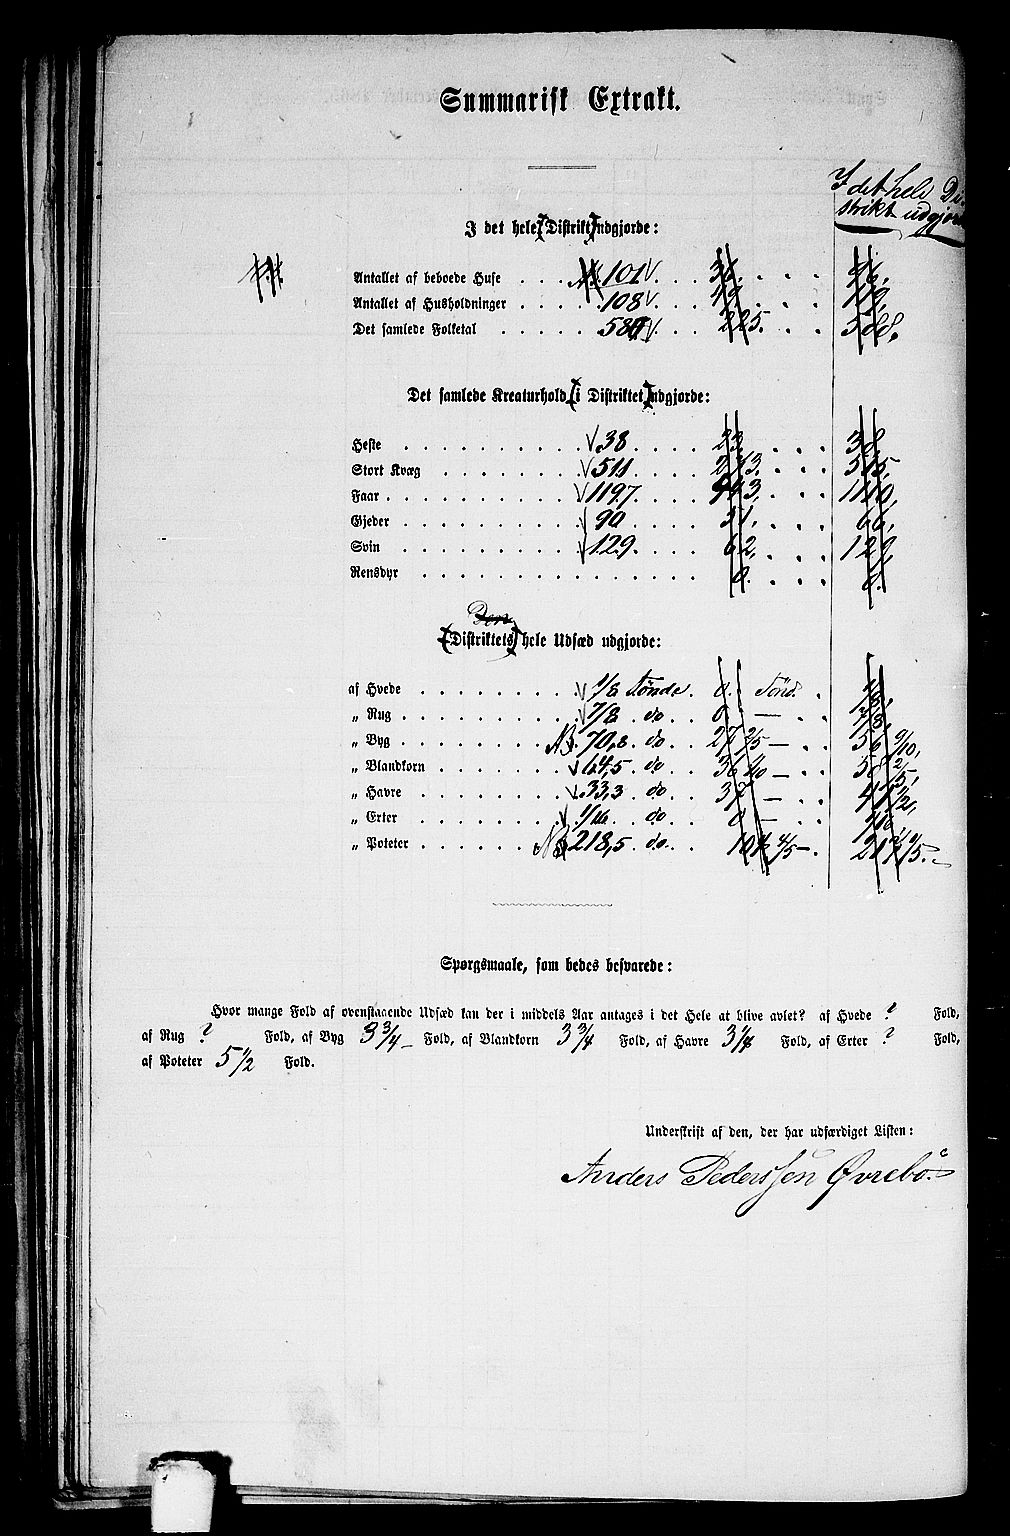 Summarisk Extrakt.
I det hele Di-
strikt udgjorde
I det hele Distrikt udgjorde:
Antallet af beboede Huse 101
Antallet af Husholdninger 108
Det samlede Folketal 225. 588.
Det samlede Kreaturhold i Distriktet udgjorde:
Heste 38 23 38
Stort Kvæg 511 515,
Faar 1197 1110,
Gjeder 90 31. 66,
Svin 129 62, 129
Rensdyr 0. 0.
Den
Distriktets hele Udsæd udgjorde:
af Hvede 1/8 Tønde 0. Tønd.
„ Rug 7/8 do 0 —
„ Byg NB. 70,8 do 27 2/5 — 56 9/10,
„ Blandkorn 64,5 do
„ Havre 33,3 do —
„ Erter 1/16 do 0 —
„ Poteter NB 218,5 do
Spørgsmaale, som bedes besvarede:
Hvor mange Fold af ovenstaaende Udsæd kan der i middels Aar antages i det Hele at blive avlet? af Hvede ? Fold,
af Rug ? Fold, af Byg 3 3/4 — Fold, af Blandkorn 3 3/4 Fold, af Havre 3 1/4 Fold, af Erter ? Fold,
af Poteter 5 1/2 Fold.
Underskrift af den, der har udfærdiget Listen:
Anders Pederssen Øvrebö.